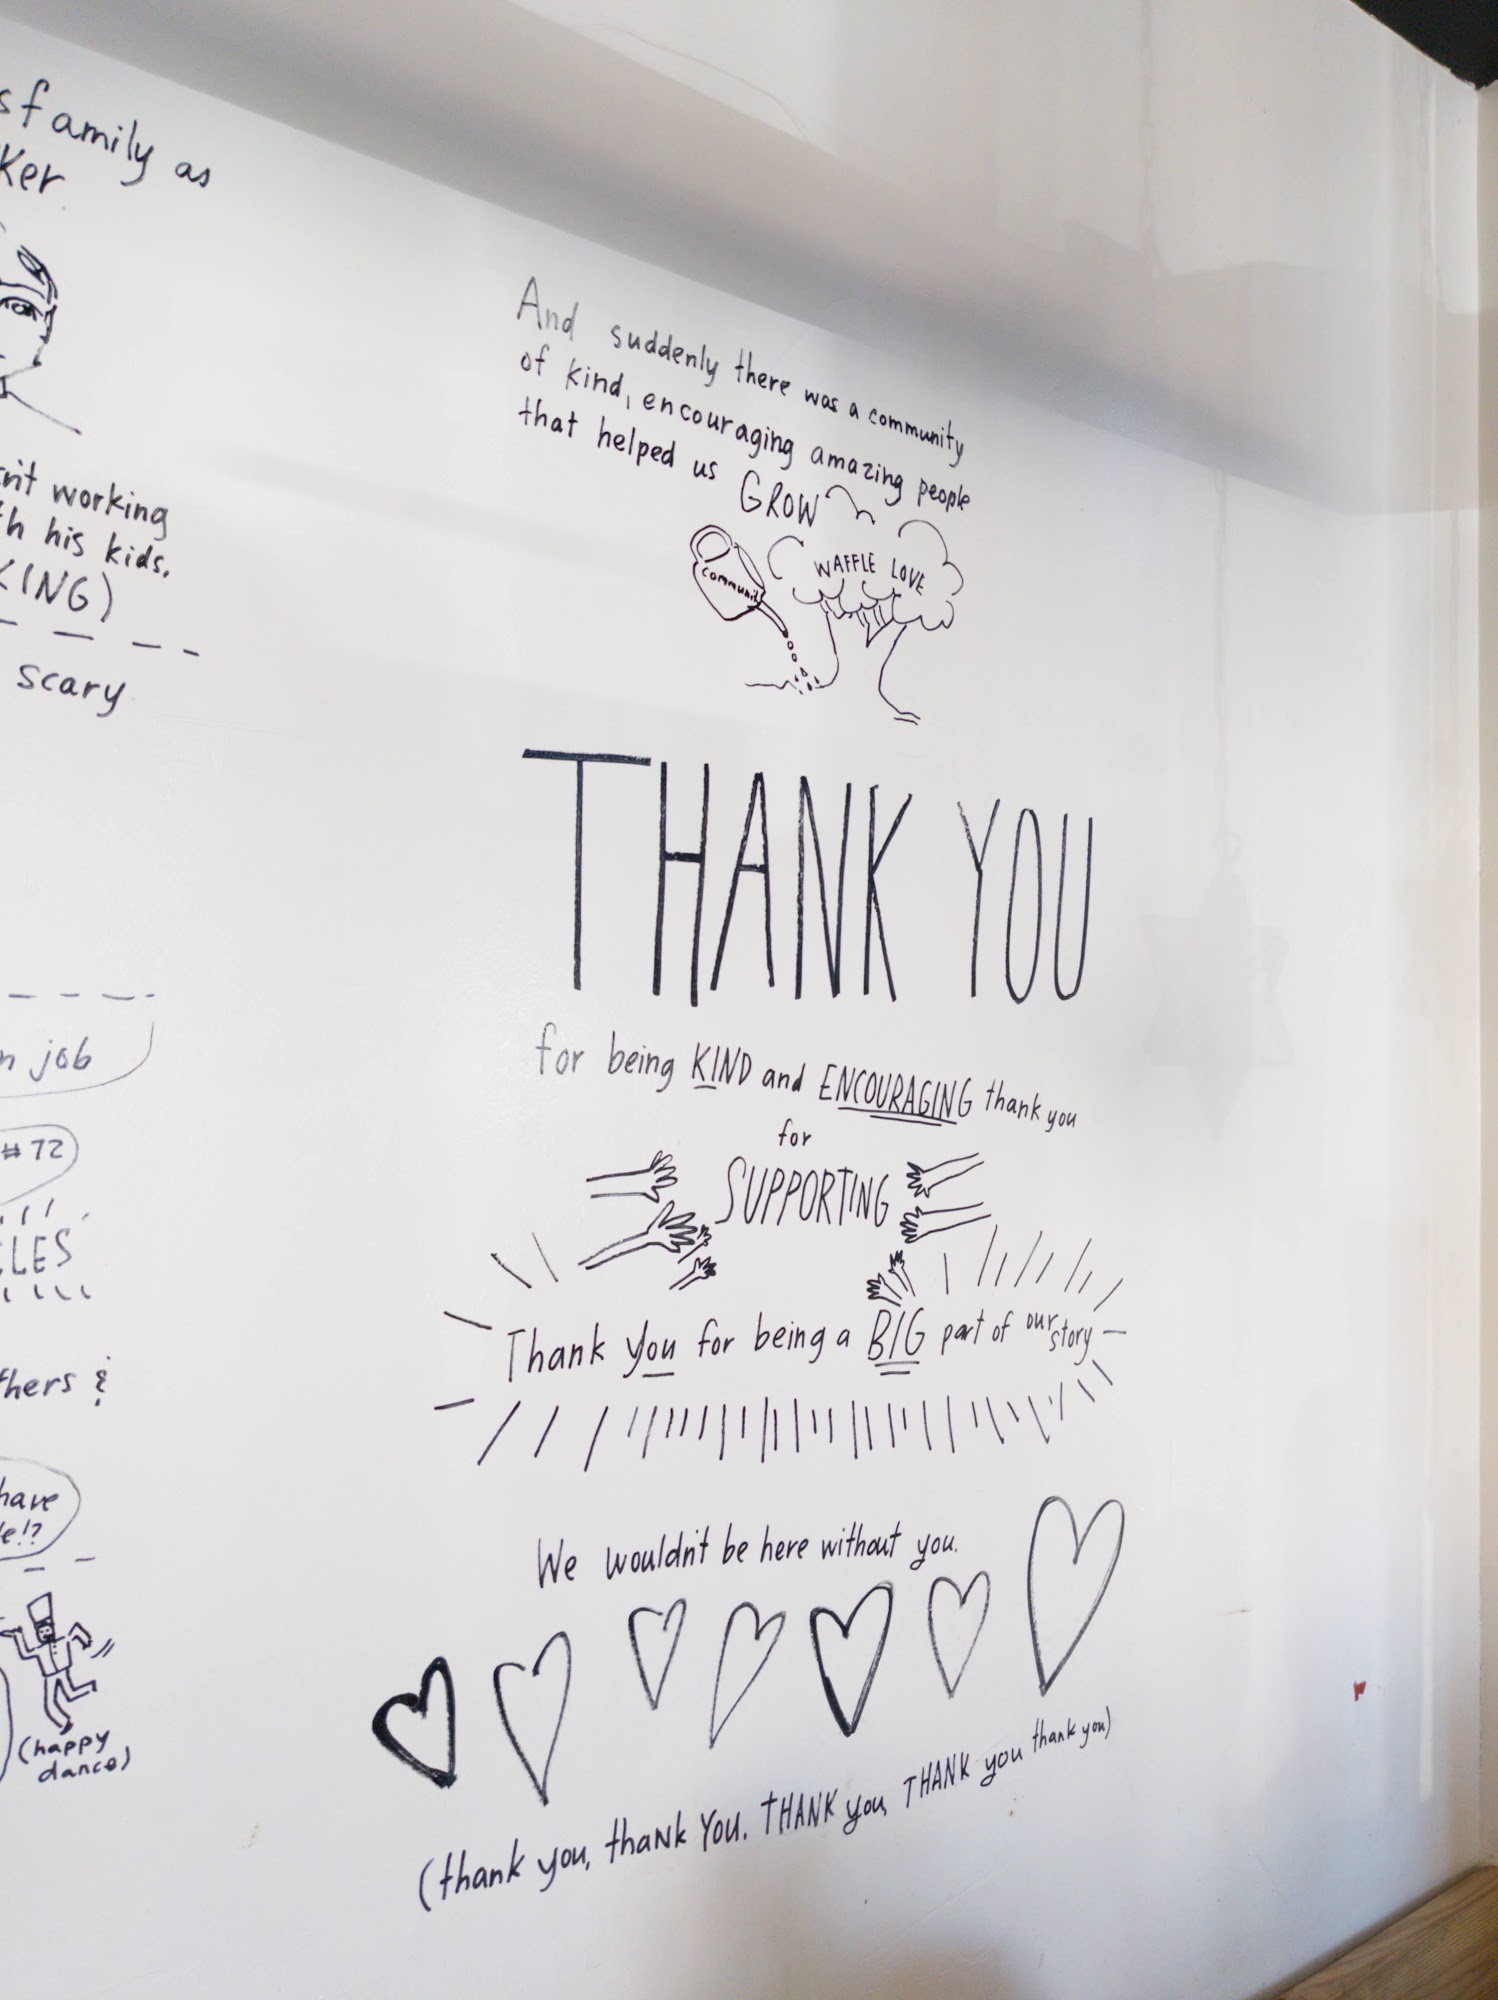 family as
And suddenly there was a community
of kind, encouraging amazing people
that helped us GROW
community
WAFFLE LOVE
working
his kids.
scary
THANK YOU
job
for being KIND and ENCOURAGING thank you
for
#72
SUPPORTING
Thank you for being a BIG part of our story
&
have
We wouldn't be here without you.
(happy
dance)
(thank you, thank You. THANK you, THANK you thank you)